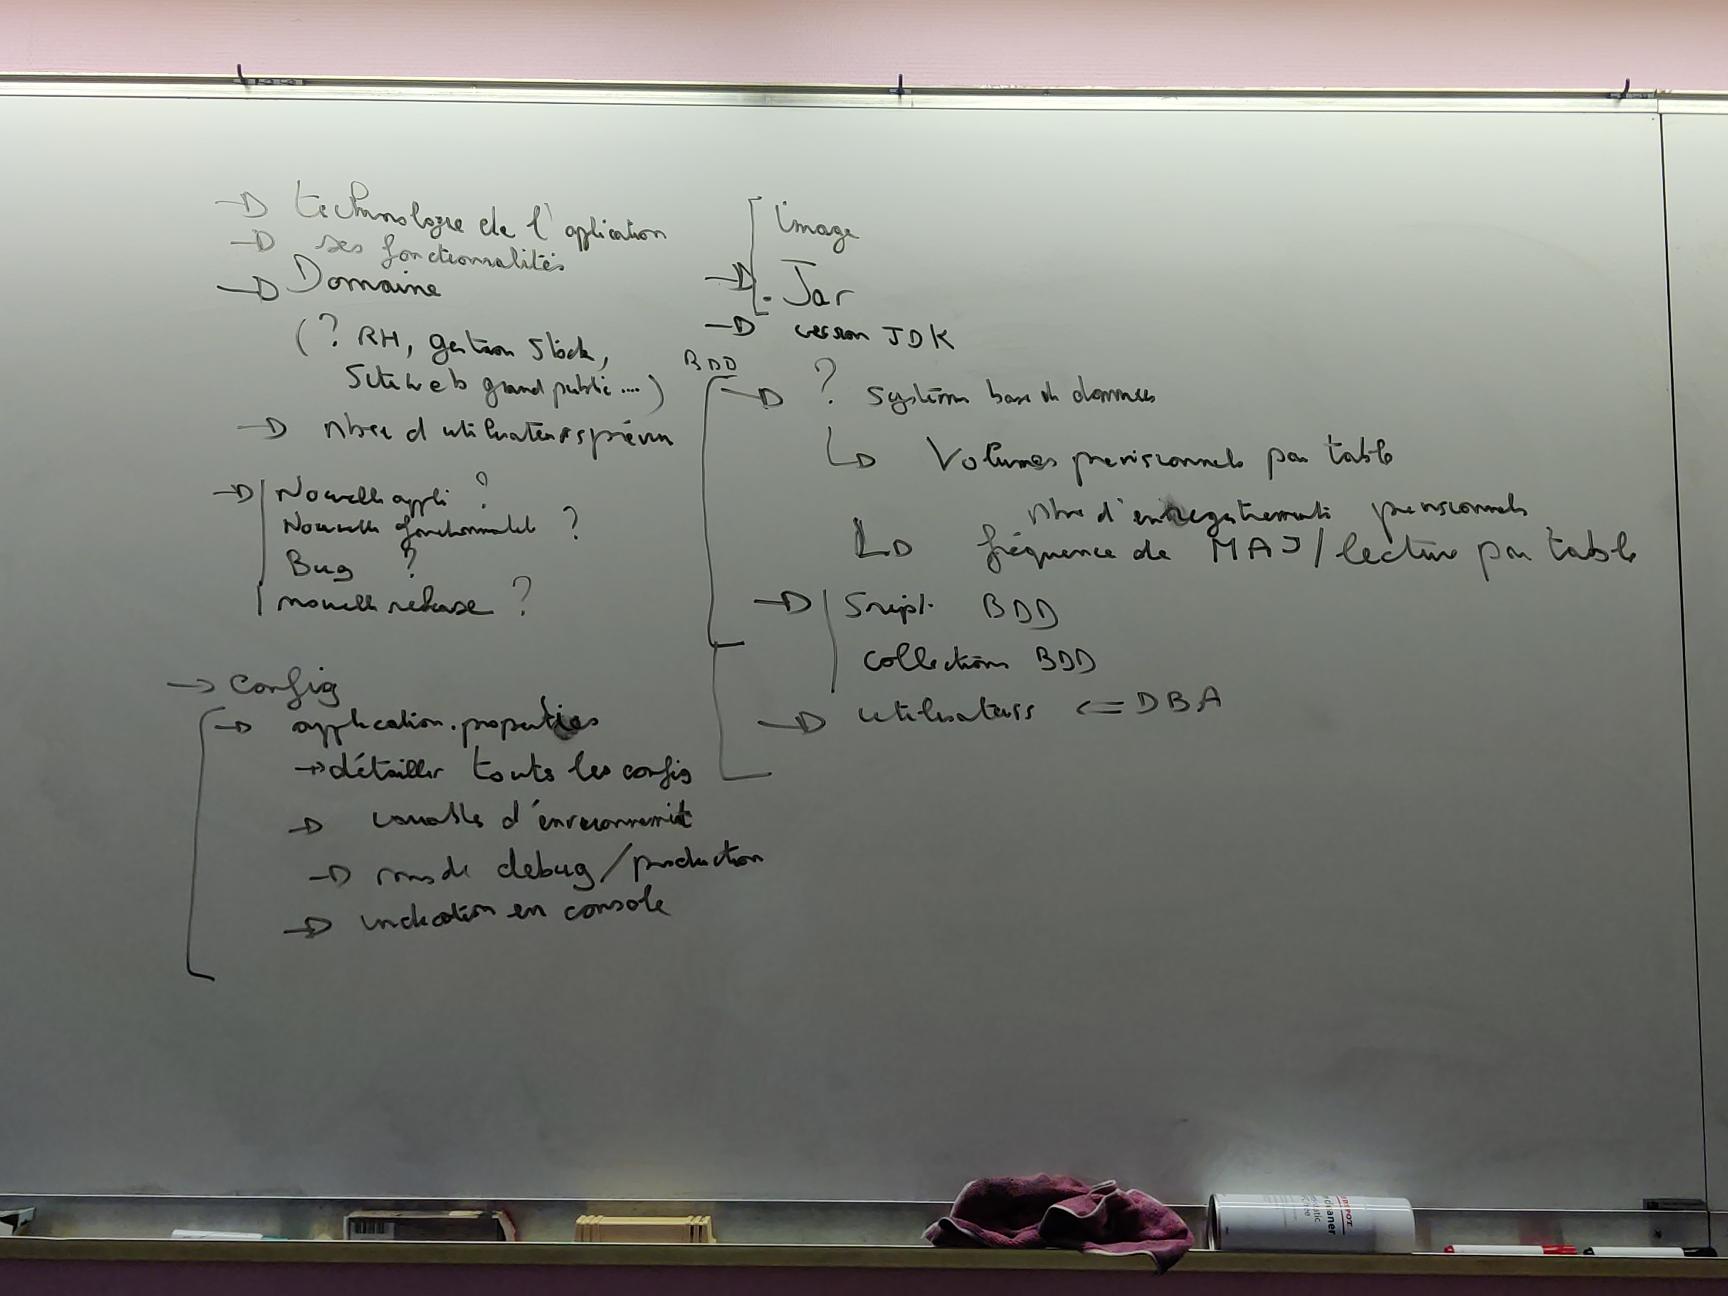 → technologie de l'application
→ ses fonctionnalités
→ Domaine
(? RH, gestion Stock,
Site web grand public ....)
→ nbre d'utilisateurs prévu
→ Nouvelle appli ?
Nouvelle fonctionnalité ?
Bug ?
nouvelle release ?
→ Config
→ application.properties
→ détailler toutes les config
→ variables d'environnement
→ mode debug/production
→ indication en console
image
→ .Jar
→ version JDK
BDD
→ ? système base de données
↳ Volumes previsionnels par table
nbre d'entregistrements previsionnels
↳ fréquence de MAJ/lecture par table
→ Script BDD
collections BDD
→ utilisateurs <= DBA